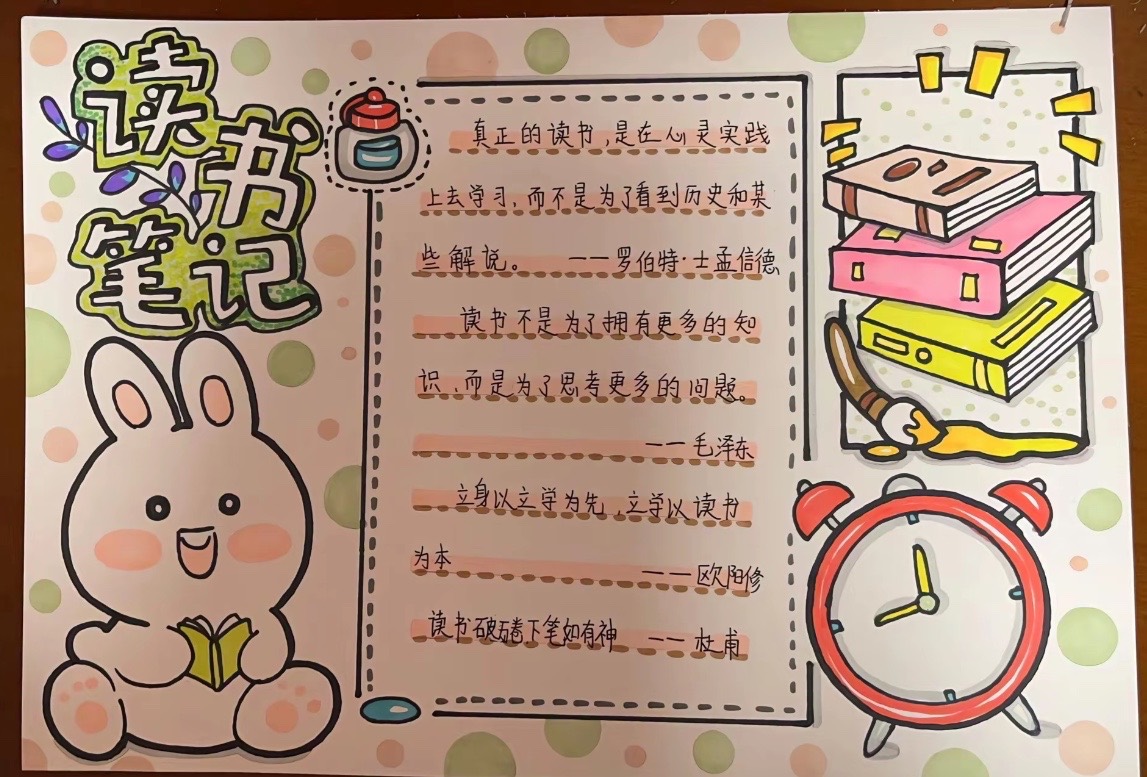 读书
笔记
真正的读书,是在心灵实践
上去学习,而不是为了看到历史和某
些解说。 ——罗伯特·士孟信德
读书不是为了拥有更多的知
识、而是为了思考更多的问题。
——毛泽东
立身以立学为先,立学以读书
为本 ——欧阳修
读书破万卷下笔如有神 ——杜甫